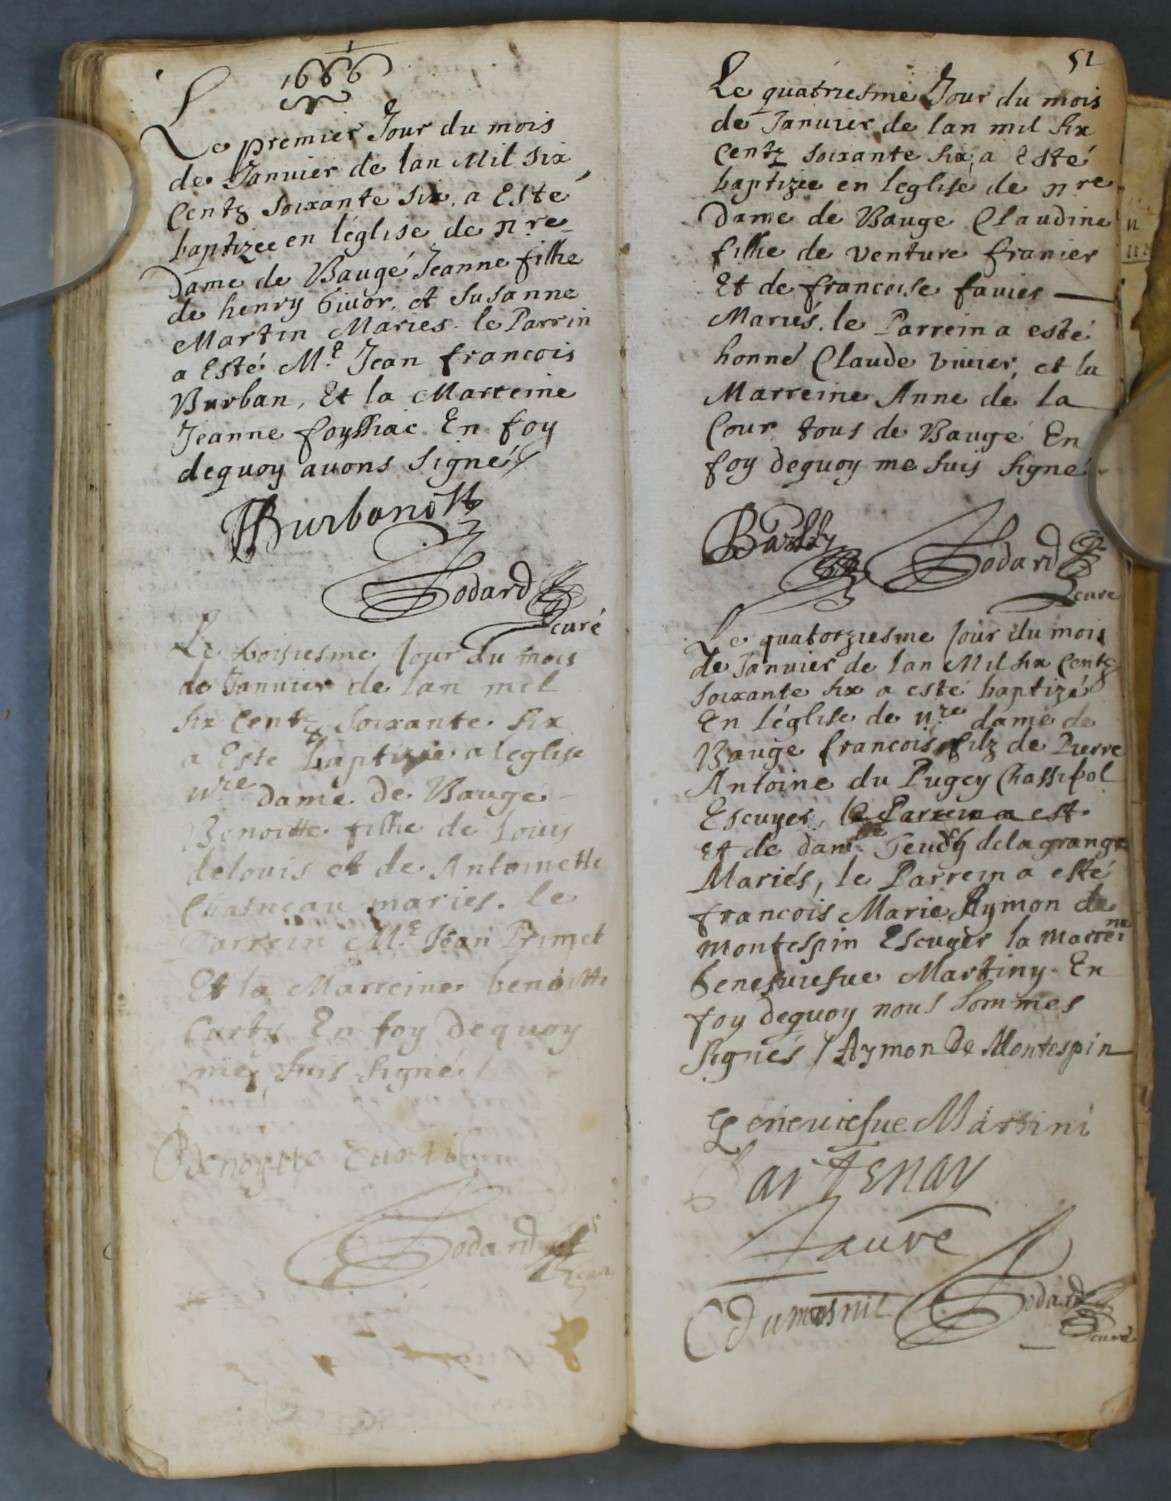 1666
Le premier Jour du mois
de Januier de lan Mil six
Centz soixante six, a Esté
baptizee en l'église de nre
Dame de Baugé Jeanne fille
de henry Giuor, et Susanne
Martin Maries. le Parrin
a Esté Me. Jean francois
Burban, Et la Marreine
Jeanne foyssiac En foy
dequoy auons Signé
Burbanott
Godard
curé
Le troisiesme Jour du mois
de Januier de lan mil
six Centz Soixante six
a Este baptizée a leglise
nre dame de Bauge
Benoitte fille de Louis
delouis et de Antoinette
maries. le
Parrein Me Jean Primet
Et la Marreine benoitte
Curty En foy dequoy
me suis signé
Benoytte
Godard
51
Le quatriesme Jour du mois
de Januier de lan mil six
Centz soixante six, a Esté
baptizée en leglise de nre
Dame de Bauge Claudine
fille de Venture franier
Et de francoise fauier
Mariés. le Parrein a esté
honné Claude viuier, et la
Marreine Anne de la
Cour tous de Baugé En
foy dequoy me suis signé
Godard
cure
Le quatorziesme Jour du mois
de Januier de lan Mil six Centz
soixante six a esté baptizé
En l'église de nre dame de
Bauge francois filz de Pierre
Antoine du Pugey Chassipol
Escuyer, le Parrein a est
Et de damlle Jeudy dela grange
Mariés, le Parrein a esté
francois Marie Aymon de
montespin Escuyer la Marreine
Geneuiefue Martiny. En
foy dequoy nous sommes
signés / Aymon De Montespin
Geneuiefue Martini
Partenay
Faure
Dumesnil Godard
curé